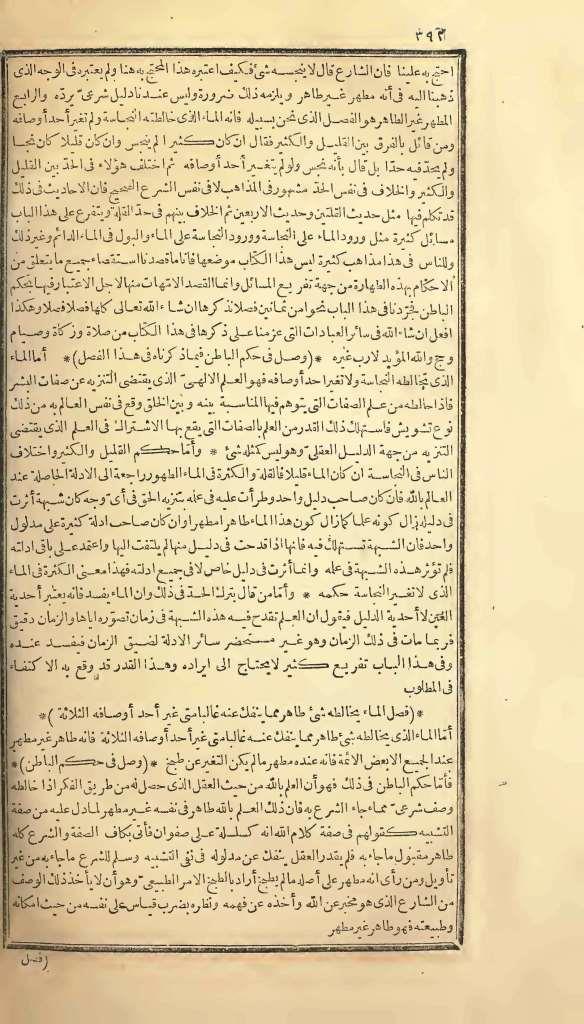 ٣٩٢
احتج به علينا فان الشارع قال لا ينجسه شئ فكيف اعتبره هذا المحتج به هنا ولم يعتبره فى الوجه الذى
ذهبنا اليه فى أنه مطهر غير طاهر ويلزمه ذلك ضرورة وليس عندنا دليل شرعى يرده والرابع
المطهر غير الطاهر هو الفصل الذى نحن بسبيله فانه الماء الذى خالطته النجاسة ولم تغير أحد أوصافه
ومن قائل بالفرق بين القليل والكثير فقال ان كان كثيرا لم ينجس وان كان قليلا كان نجسا
ولم يحد فيه حدا بل قال بأنه نجس ولو لم يتغير أحد أوصافه ثم اختلف هؤلاء فى الحد بين القليل
والكثير والخلاف فى نفس الحد مشهور فى المذاهب لا فى نفس الشرع الصحيح فان الاحاديث فى ذلك
قد تكلم فيها مثل حديث القلتين وحديث الاربعين ثم الخلاف بينهم فى حد القلة ويتفرع على هذا الباب
مسائل كثيرة مثل ورود الماء على النجاسة وورود النجاسة على الماء والبول فى الماء الدائم وغير ذلك
وللناس فى هذا مذاهب كثيرة ليس هذا الكتاب موضعها فانا ما قصدنا استقصاء جميع ما يتعلق من
الاحكام بهذه الطهارة من جهة تفريع المسائل وانما القصد الامهات منها لاجل الاعتبار فيها بحكم
الباطن فجردنا فى هذا الباب نحوا من ثمانين فصلا نذكرها ان شاء الله تعالى كلها فصلا فصلا وهكذا
افعل ان شاء الله فى سائر العبادات التى عزمنا على ذكرها فى هذا الكتاب من صلاة وزكاة وصيام
وحج والله المؤيد لا رب غيره * (وصل فى حكم الباطن فيما ذكرناه فى هذا الفصل) * أما الماء
الذى تخالطه النجاسة ولا تغير احد أوصافه فهو العلم الالهى الذى يقتضى التنزيه عن صفات البشر
فاذا خالطه من علم الصفات التى يتوهم فيها المناسبة بينه وبين الخلق وقع فى نفس العالم به من ذلك
نوع تشويش فاستهلك ذلك القدر من العلم بالصفات التى يقع بها الاشتراك فى العلم الذى يقتضى
التنزيه من جهة الدليل العقلى وهو ليس كمثله شئ * وأما حكم القليل والكثير واختلاف
الناس فى النجاسة ان كان الماء قليلا فالقلة والكثرة فى الماء الطهور راجعة الى الادلة الحاصلة عند
العالم بالله فان كان صاحب دليل واحد وطرأت عليه فى علمه بتنزيه الحق فى أى وجه كان شبهة أثرت
فى دليله زال كونه علما كما زال كون هذا الماء طاهرا مطهرا وان كان صاحب ادلة كثيرة على مدلول
واحد فان الشبهة تستهلك فيه فانها اذا قدحت فى دليل منها لم يلتفت اليها واعتمد على باقى ادلته
فلم تؤثر هذه الشبهة فى علمه وانما أثرت فى دليل خاص لا فى جميع ادلته فهذا معنى الكثرة فى الماء
الذى لا تغير النجاسة حكمه * وأما من قال بترك الحد فى ذلك وان الماء يفسد فانه يعتبر أحدية
العين لا أحدية الدليل فيقول ان العلم تقدح فيه هذه الشبهة فى زمان تصوره اياها والزمان دقيق
فربما مات فى ذلك الزمان وهو غير مستحضر سائر الادلة لضيق الزمان فيفسد عنده
وفى هذا الباب تفريع كثير لا يحتاج الى ايراده وهذا القدر قد وقع به الاكتفاء
فى المطلوب
* (فصل الماء يخالطه شئ طاهر مما ينفك عنه غالبا متى غير أحد أوصافه الثلاثة) *
أما الماء الذى يخالطه شئ طاهر مما ينفك عنه غالبا متى غير أحد أوصافه الثلاثة فانه طاهر غير مطهر
عند الجميع الا بعض الائمة فانه عنده مطهر ما لم يكن التغير عن طبخ * (وصل فى حكم الباطن) *
فأما حكم الباطن فى ذلك فهو أن العلم بالله من حيث العقل الذى حصل له من طريق الفكر اذا خالطه
وصف شرعى مما جاء الشرع به فان ذلك العلم بالله طاهر فى نفسه غير مطهر لما دل عليه من صفة
التشبيه كقولهم فى صفة كلام الله انه كسلسلة على صفوان فأتى بكاف الصفة والشرع كله
طاهر مقبول ما جاء به فلم يقدر العقل ينفك عن مدلوله فى نفى التشبيه وسلم للشرع ما جاء به من غير
تأويل ومن رأى انه مطهر على أصله ما لم يطبخ أراد بالطبخ الامر الطبيعى وهو أن لا يأخذ ذلك الوصف
من الشارع الذى هو مخبر عن الله وأخذه عن فهمه ونظره بضرب قياس على نفسه من حيث امكانه
وطبيعته فهو طاهر غير مطهر
(فصل